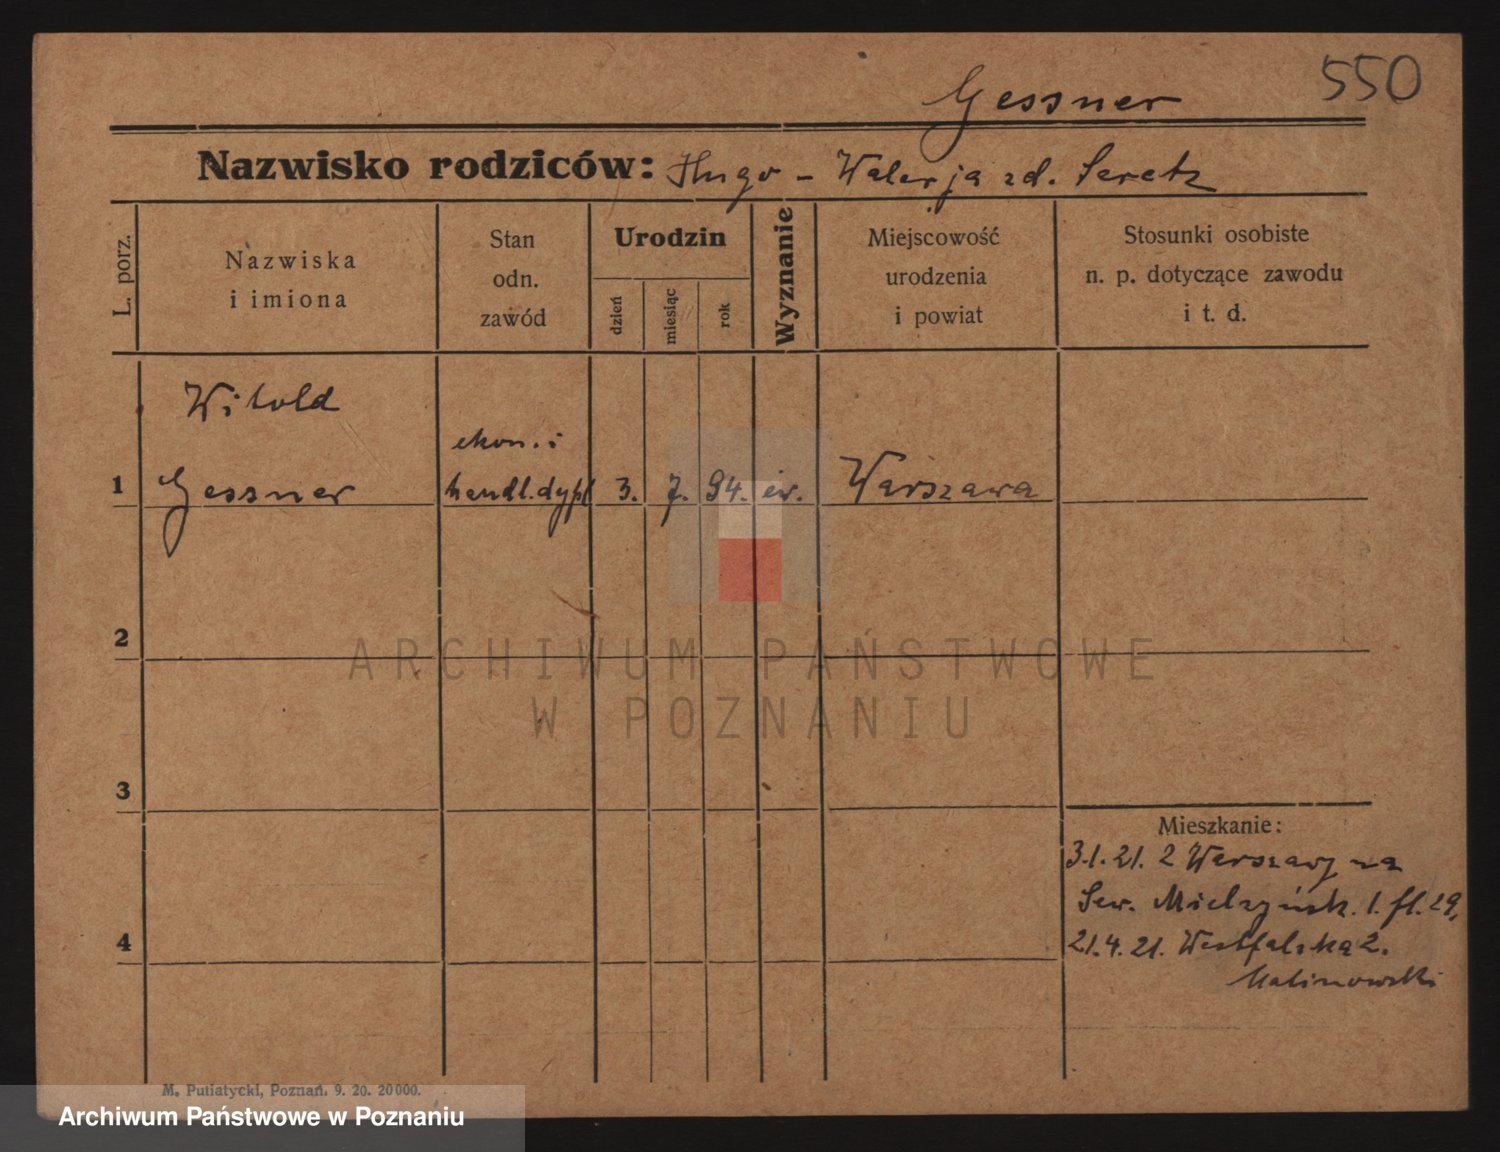 550
Gessner
Nazwisko rodziców: Hugo - Walerja zd. Seretz
L. porz.
Nazwiska
i imiona
Stan
odn.
zawód
Urodzin
dzień
miesiąc
rok
Wyznanie
Miejscowość
urodzenia
i powiat
Stosunki osobiste
n. p. dotyczące zawodu
i t. d.
Witold
ekon. i
1 Gessner handl. dypl 3. 7. 94. ew. Warszawa
2
ARCHIWUM PAŃSTWOWE
W POZNANIU
3
Mieszkanie:
3.1.21. z Warszawy na
Sew. Mielżyńsk. 1. fl. 29,
4
21.4.21. Westfalską 2.
Malinowski
M. Putiatycki, Poznań. 9. 20. 20000.
Archiwum Państwowe w Poznaniu